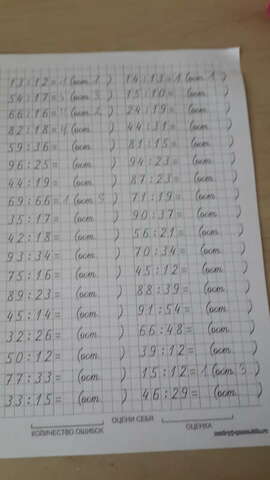 13:12=1(ост.1) 14:13=1(ост.1)
54:17=3(ост.3) 15:10=(ост. )
66:16=4(ост.2) 24:19=(ост. )
82:18=4(ост. ) 44:31=(ост. )
59:36=(ост. ) 81:15=(ост. )
96:25=(ост. ) 94:23=(ост. )
44:19=(ост. ) 87:23=(ост. )
69:66=1(ост.3) 71:19=(ост. )
35:17=(ост. ) 90:37=(ост. )
42:18=(ост. ) 56:21=(ост. )
93:34=(ост. ) 70:34=(ост. )
75:16=(ост. ) 45:12=(ост. )
89:23=(ост. ) 88:39=(ост. )
45:14=(ост. ) 91:54=(ост. )
32:26=(ост. ) 66:48=(ост. )
50:12=(ост. ) 39:12=(ост. )
77:33=(ост. ) 15:12=1(ост.3)
33:15=(ост. ) 46:29=(ост. )
ОЦЕНИ СЕБЯ
КОЛИЧЕСТВО ОШИБОК ОЦЕНКА